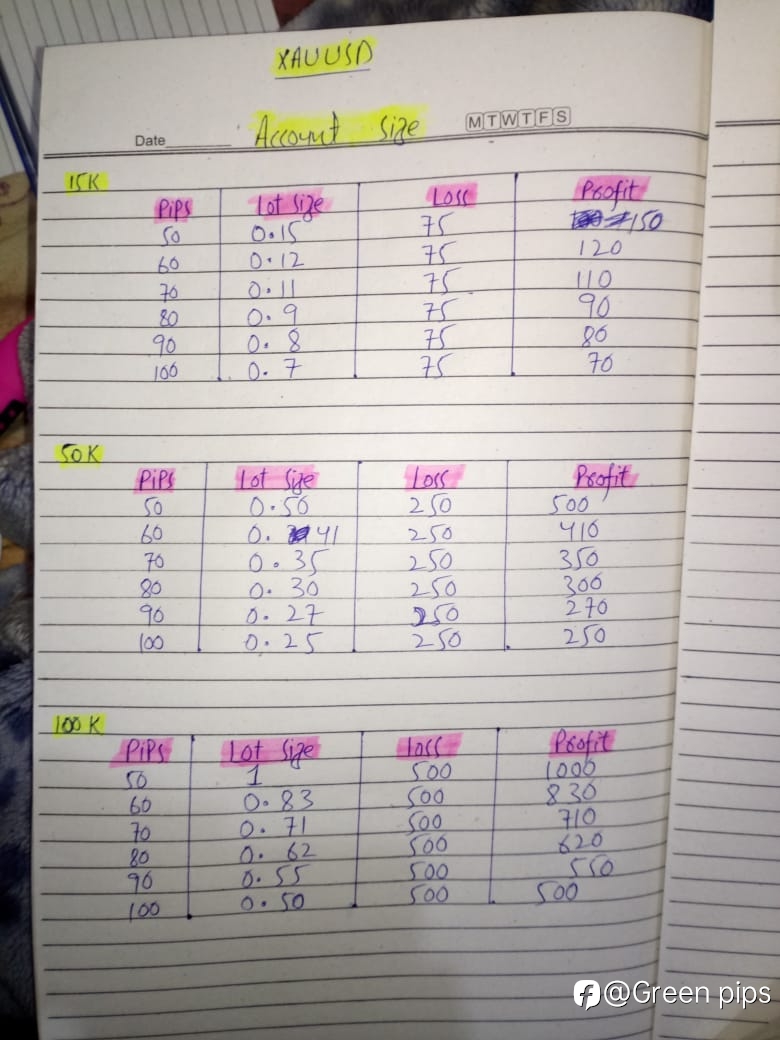 XAUUSD
Date Account Size M T W T F S
15K
PiPs Lot Size Loss Profit
50 0.15 75 150
60 0.12 75 120
70 0.11 75 110
80 0.9 75 90
90 0.8 75 80
100 0.7 75 70
50K
PiPs Lot Size Loss Profit
50 0.50 250 500
60 0.41 250 410
70 0.35 250 350
80 0.30 250 300
90 0.27 250 270
100 0.25 250 250
100K
PiPs Lot Size Loss Profit
50 1 500 1000
60 0.83 500 830
70 0.71 500 710
80 0.62 500 620
90 0.55 500 550
100 0.50 500 500
@Green pips